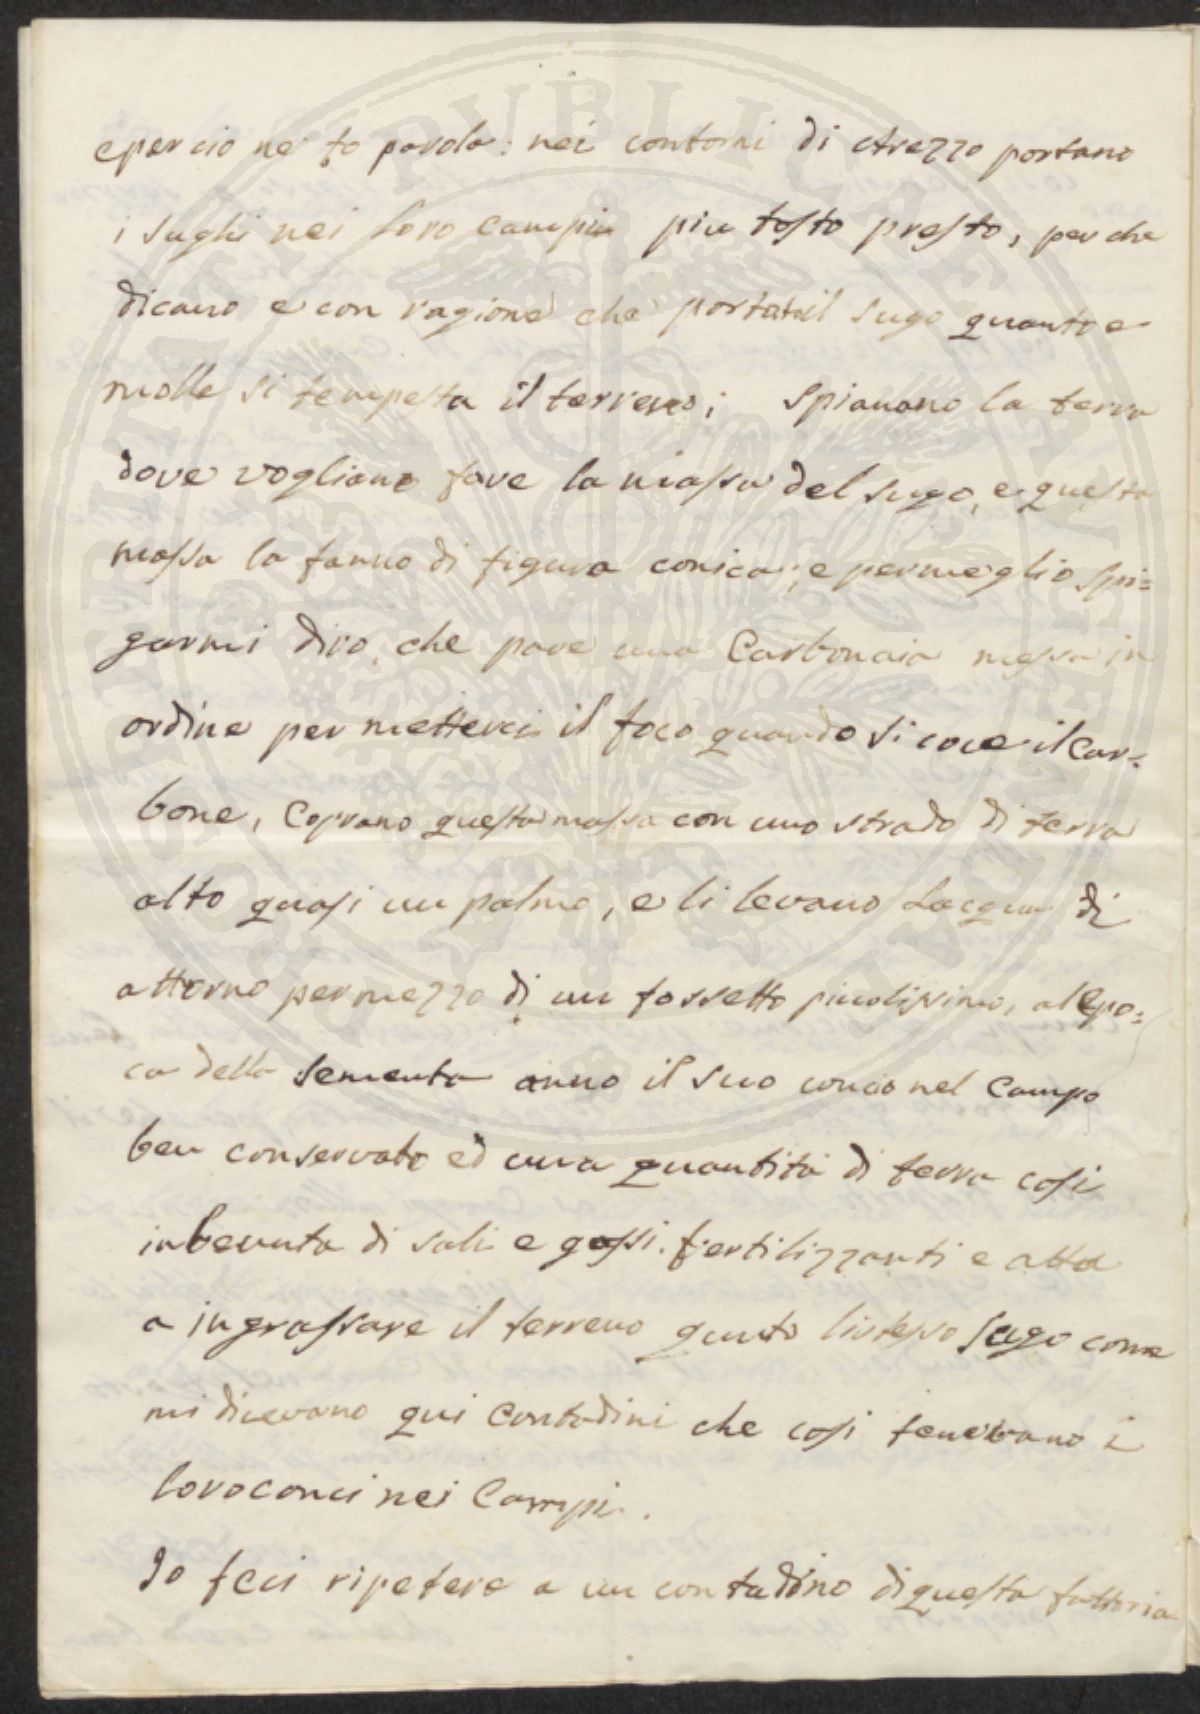 e percio ne fo parola: nei contorni di Arezzo portano
i sughi nei loro campi piu tosto presto, per che
dicano e con ragione che portato il sugo quanto e
molle si tempesta il terreno; spianano la terra
dove vogliano fare la massa del sugo, e questa
massa la fanno di figura conica; e per meglio spi=
garmi diro, che pare una Carbonaia messa in
ordine per metterci il foco quando si coce il Car=
bone, Coprano questa massa con uno strado di terra
alto quasi un palmo, e li levano Lacqua di
attorno per mezzo di un fossetto piccolissimo, alepo=
ca della sementa anno il suo concio nel Campo
ben conservato ed una quantità di terra cosi
inbevuta di sali e gassi fertilizzanti e atta
a ingrassare il terreno qunto listesso sugo come
mi dicevano qui Contadini che cosi tenevano i
loro conci nei Campi.
Io feci ripetere a un contadino di questa fattoria